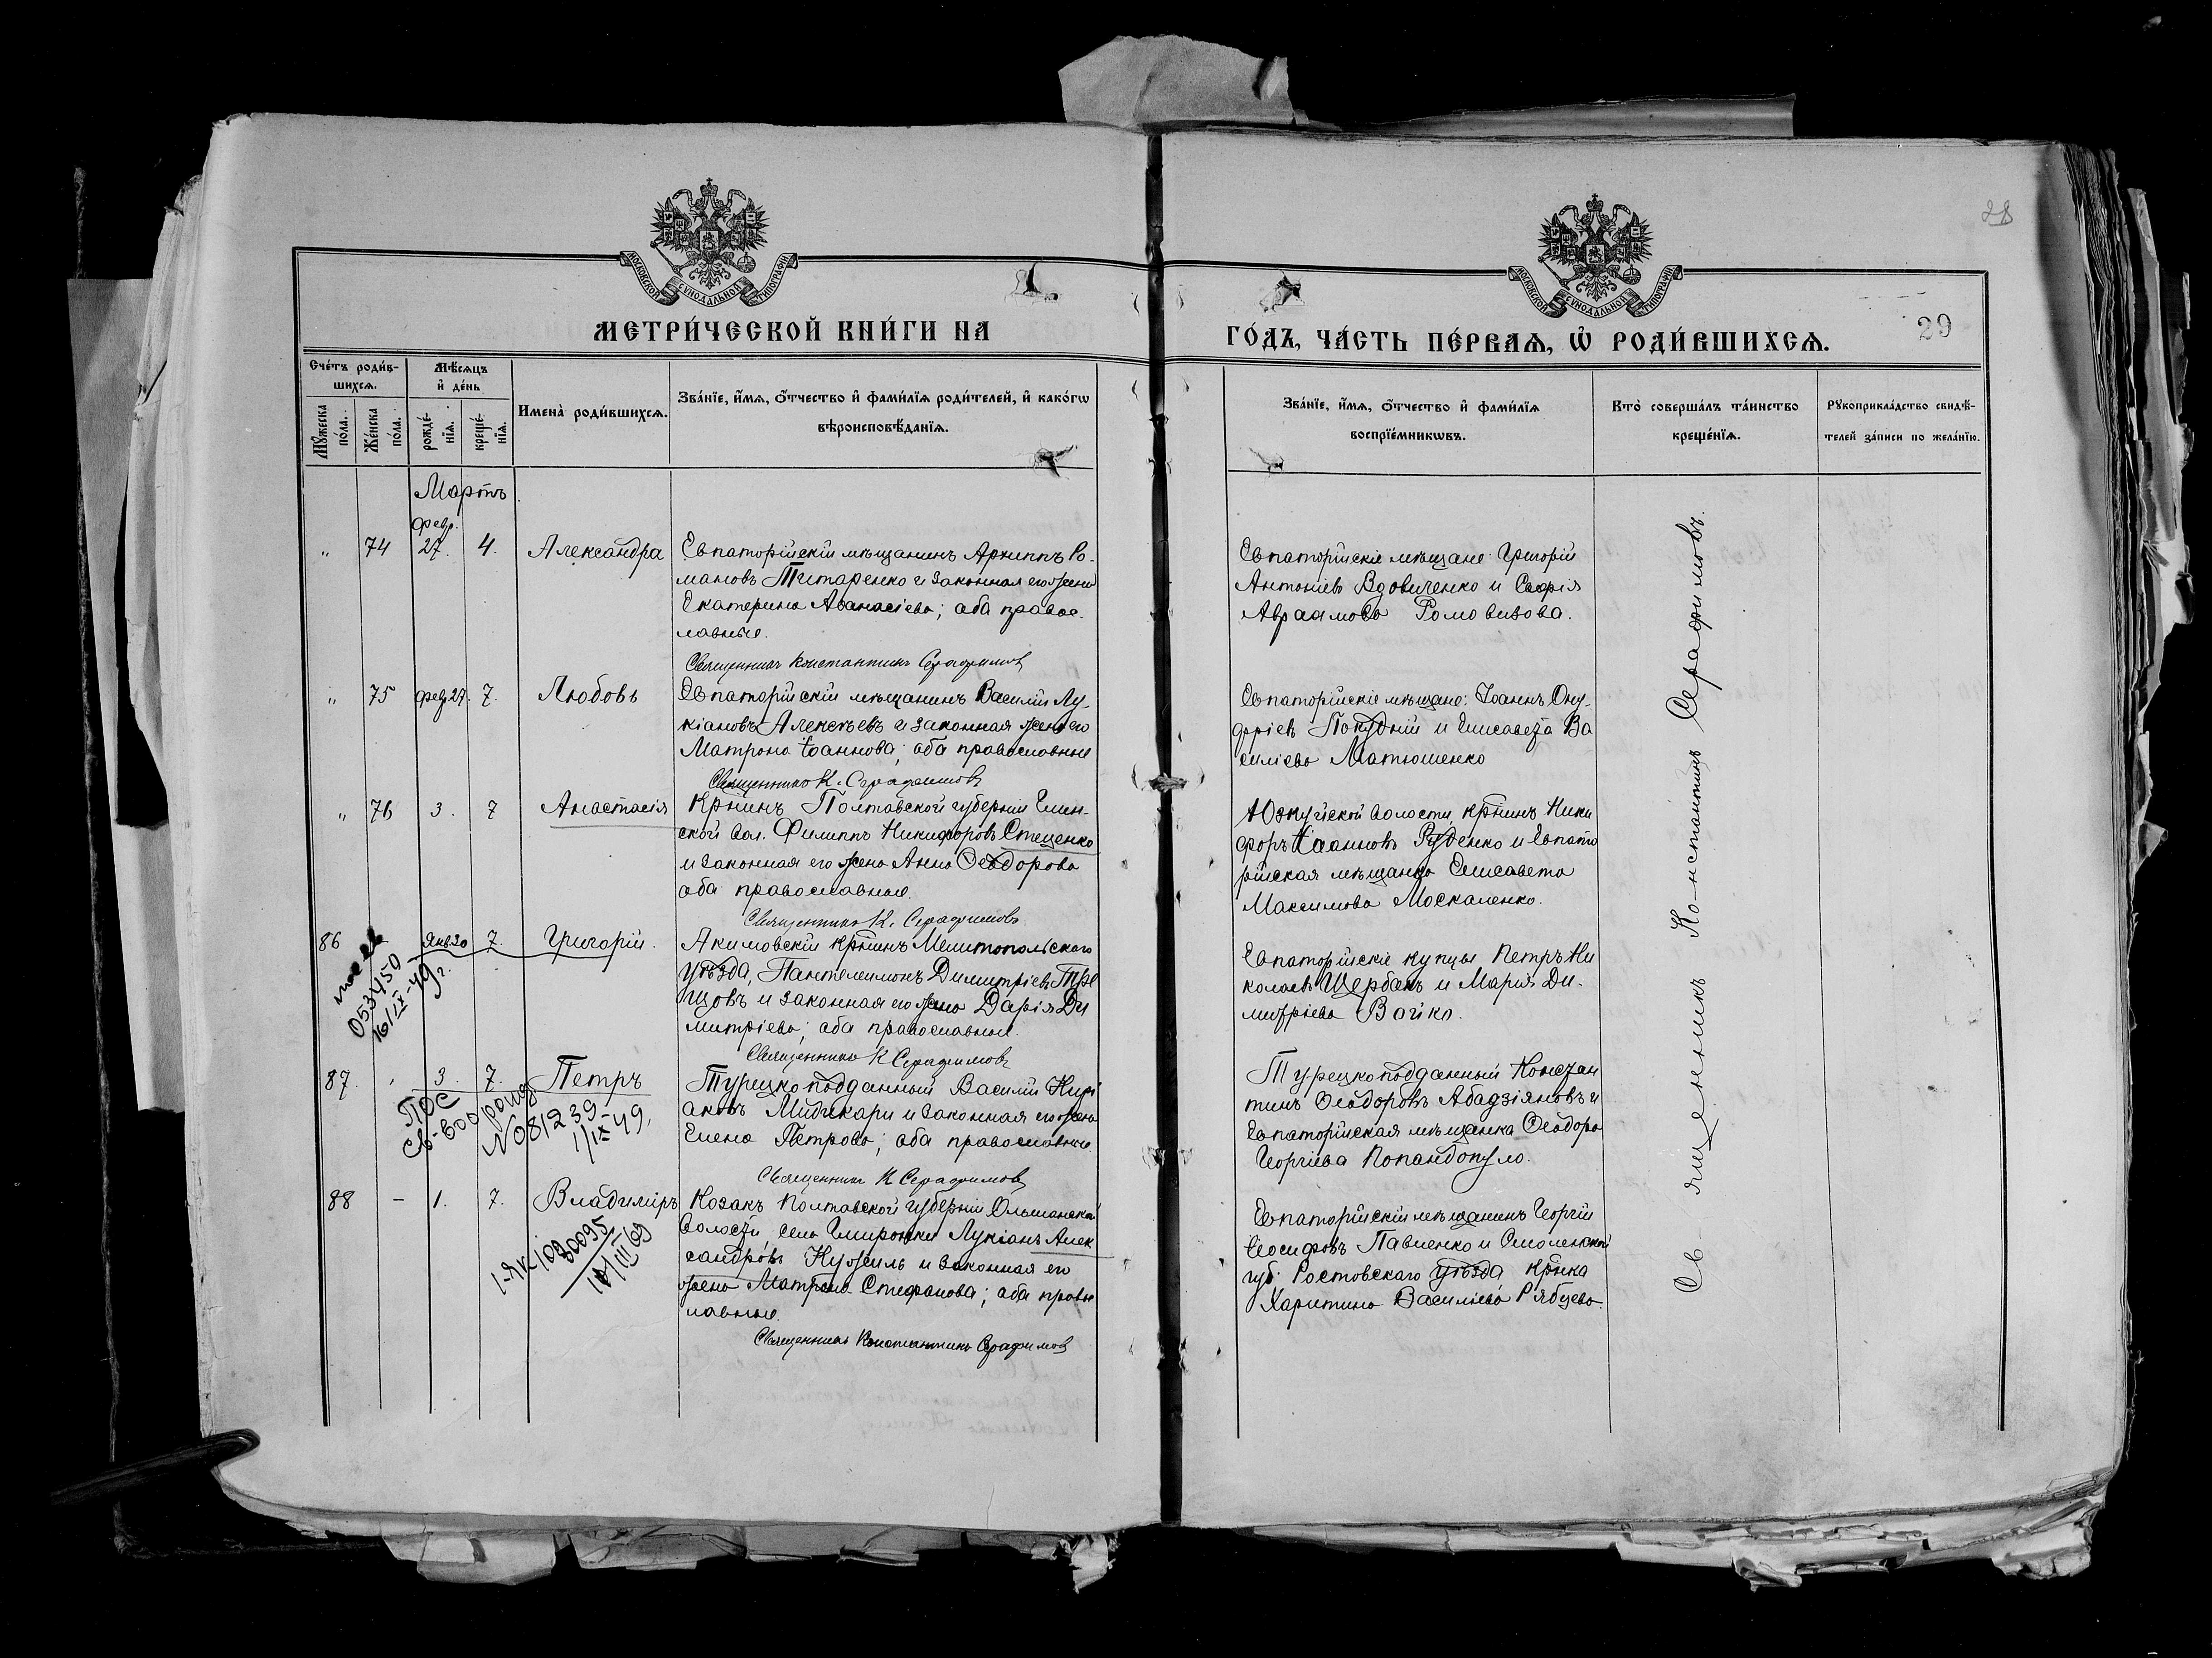 28
МОСКОВСКОЙ СѴНОДАЛЬНОЙ ТИПОГРАФІИ
МОСКОВСКОЙ СѴНОДАЛЬНОЙ ТИПОГРАФІИ
МЕТРИ́ЧЕСКОЙ КНИ́ГИ НА
ГО́ДЪ, ЧА́СТЬ ПЕ́РВАѦ, Ѡ҆ РОДИ́ВШИХСѦ.
29
Сче́тъ роди́в-
шихсѧ.
Мꙋ́жеска
по́ла.
Же́нска
по́ла.
Мѣ́сѧцъ
и҆ де́нь
рожде́-
нїѧ.
креще́-
нїѧ.
Имена̀ роди́вшихсѧ.
Зва́нїе, и҆́мѧ, ѻ҆́тчество и҆ фами́лїѧ роди́телей, и҆ како́гѡ
вѣроисповѣ́данїѧ.
Зва́нїе, и҆́мѧ, ѻ҆́тчество и҆ фами́лїѧ
воспрїе́мникѡвъ.
Кто̀ соверша́лъ та́инство
креще́нїѧ.
Рꙋкоприкла́дство свидѣ́-
телей за́писи по жела́нїю.
Мартъ
февр.
" 74 27. 4. Александра
Евпаторійскій мѣщанинъ Архиппъ Ро-
мановъ Титаренко и законная его жена
Екатерина Аѳанасіева; оба правос-
лавные.
Священникъ Константинъ Серафимовъ
Евпаторійскіе мѣщане: Григорій
Антоніевъ Вдовиченко и Софія
Авраамова
" 75 февр 27. 7. Любовь
Евпаторійскій мѣщанинъ Василій Лу-
кіановъ Алексѣевъ и законная жена его
Матрона Іоаннова; оба православные
Священникъ К. Серафимовъ
Евпаторійскіе мѣщане: Іоаннъ Ону-
фріевъ и Елисавета Ва
силіева Матюшенко
" 76 3. 7 Анастасія
Кр̃нинъ Полтавской губерніи
ской вол. Филиппъ Никифоровъ Стеценко
и законная его жена Анна Ѳеодорова
оба православные.
Священникъ К. Серафимовъ
волости, кр̃нинъ Ники
форъ Іоанновъ Руденко и Евпато
рійская мѣщанка Елисавета
Максимова Москаленко.
86 Янв 20 7. Григорій.
Акимовскій кр̃нинъ Мелитопольскаго
уѣзда, Пантелеимонъ Димитріевъ
щовъ и законная его жена Дарія Ди
митріева; оба православные.
Священникъ К Серафимовъ
Евпаторійскіе купцы Петръ Ни
колаевъ Щербакъ и Марія Ди-
митріева Бойко.
053450
16/IX-49 г.
87. " 3. 7. Петръ
Турецкоподданный Василій Кирі
аковъ Мидикари и законная его жена
Елена Петрова; оба православные.
Священникъ К Серафимовъ
Турецкоподданный Констан
тинъ Ѳеодоровъ Абадзіяновъ и
Евпаторійская мѣщанка Ѳеодора
Георгіева Попандопуло.
св-во о рожд
№ 081239
1/IX 49,
88 – 1. 7. Владиміръ
Козакъ Полтавской губерніи Ольшанской
волости, села Лукіанъ Алек
сандровъ Кужель и законная его
жена Матрона Стефанова; оба правос
лавные.
Священникъ Константинъ Серафимовъ
Евпаторійскій мѣщанинъ Георгій
Іосифовъ Павленко и Смоленской
губ. Ростовскаго уѣзда кр̃нка
Харитина Василіева Рябцева.
Священникъ Константинъ Серафимовъ.